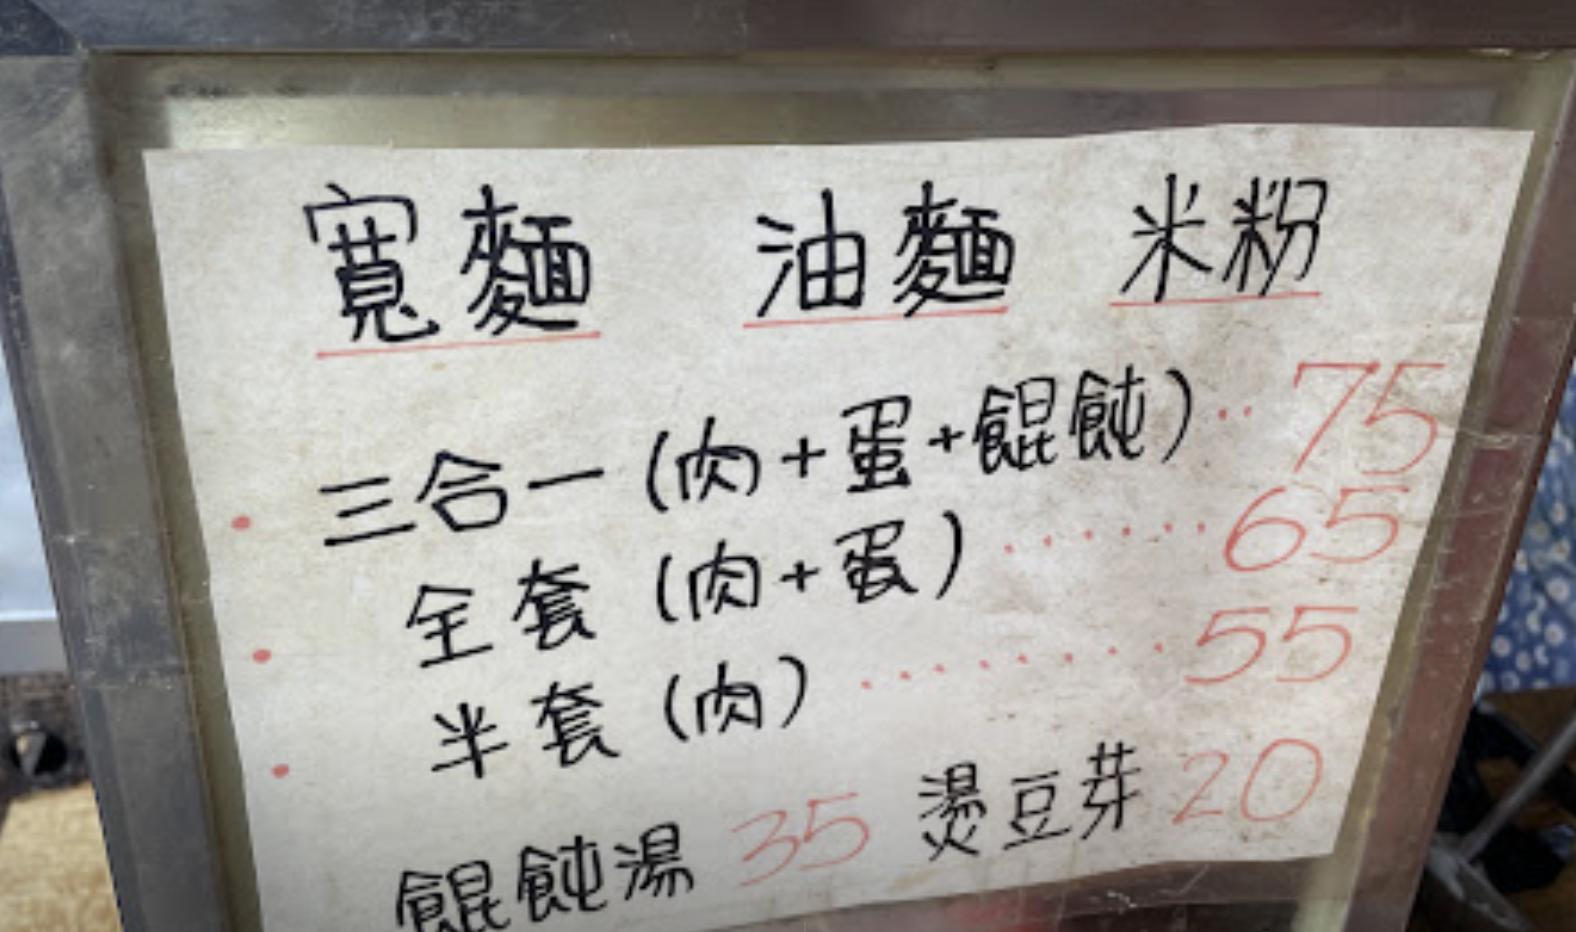 寬麵 油麵 米粉
三合一(肉+蛋+餛飩)‥75
全套(肉+蛋)‥‥‥‥65
半套(肉)‥‥‥‥‥55
餛飩湯 35 燙豆芽 20